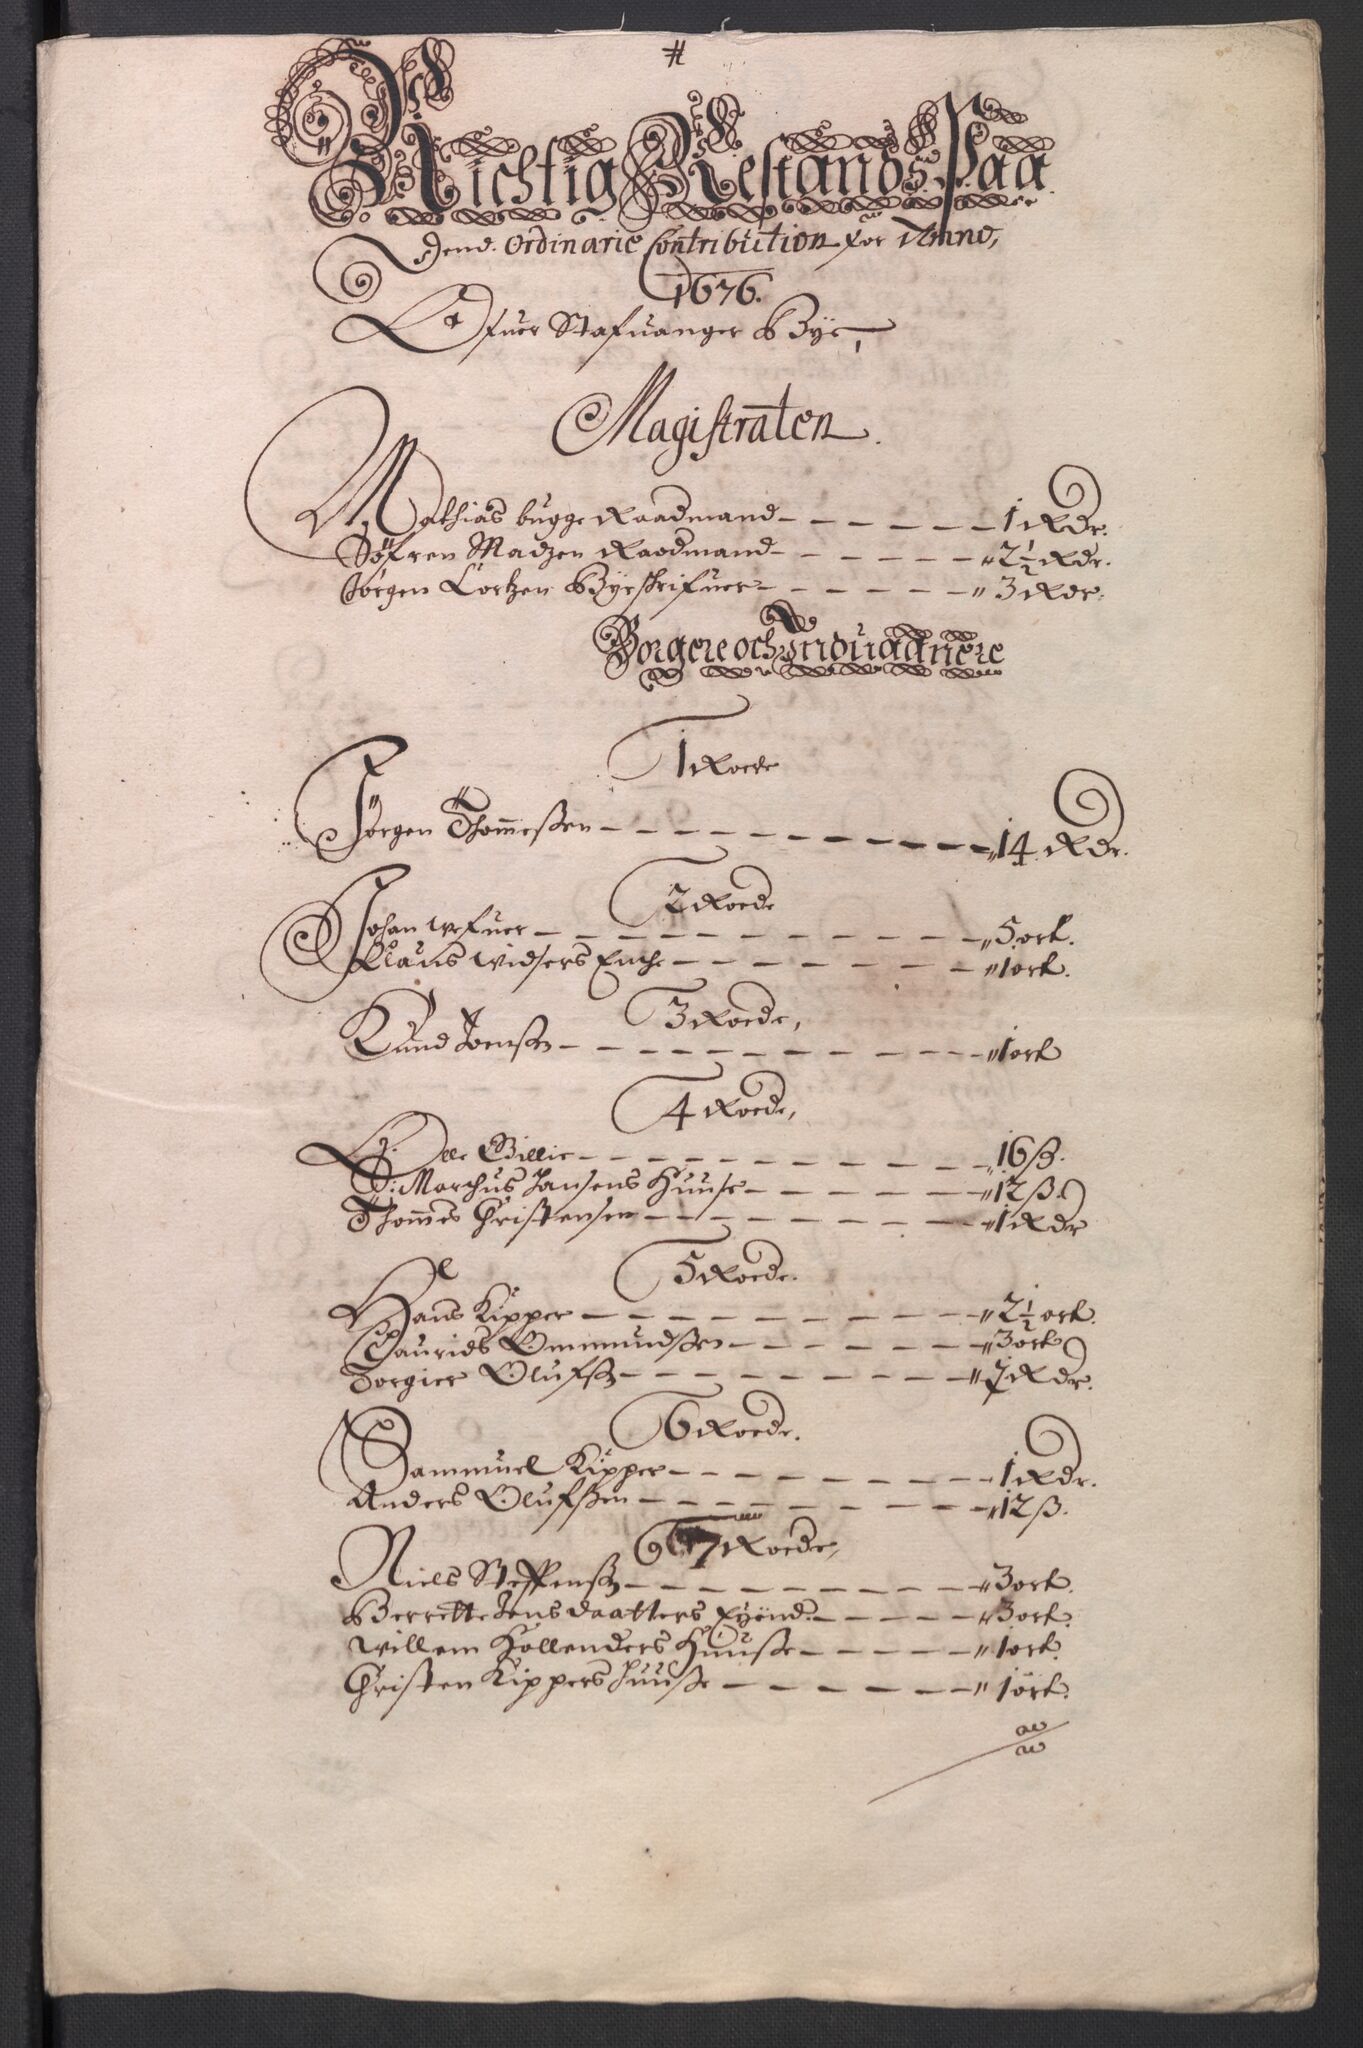 #
Richtig Restands Paa
Dend. Ordinarie Contribution for Anno,
1676.
Ofuer Stafuanger Bye,
Magistraten.
Mathias bugge Raadmand - 1 Rdr.
Søfren Madzen Raadmand - 2½ Rdr.
Jørgen Lortzen Byeskrifuer - 3 Rdr.
Borgere och Induaanere
1 Roede
Jørgen Thommeßen - 14 Rdr.
2 Roede
Johan Wefuer - 5 ort.
Claus Widsers Enche - 1 ort.
3 Roede,
Knud Joenßn - 1 ort
4 Roede,
Olle Gillie - 16 ß.
S: Marchus Jansens Huuse - 12 ß
Thommes Christensen - 1 Rdr
5 Roede.
Hans Kipper - 2½ ort.
Laurids Ommundßen - 3 ort
Torgier Olufßn - Rdr.
6 Roede.
Sammuel Kipper - 1 Rdr.
Anders Olufßen - 12 ß.
7 Roede,
Niels Steffenßn - 3 ort.
Berrette Jens daatters Eyend. - 3 ort.
Willem Hollenders Huuße - 1 ort.
Christen Kippers Huuße - 1 ort.